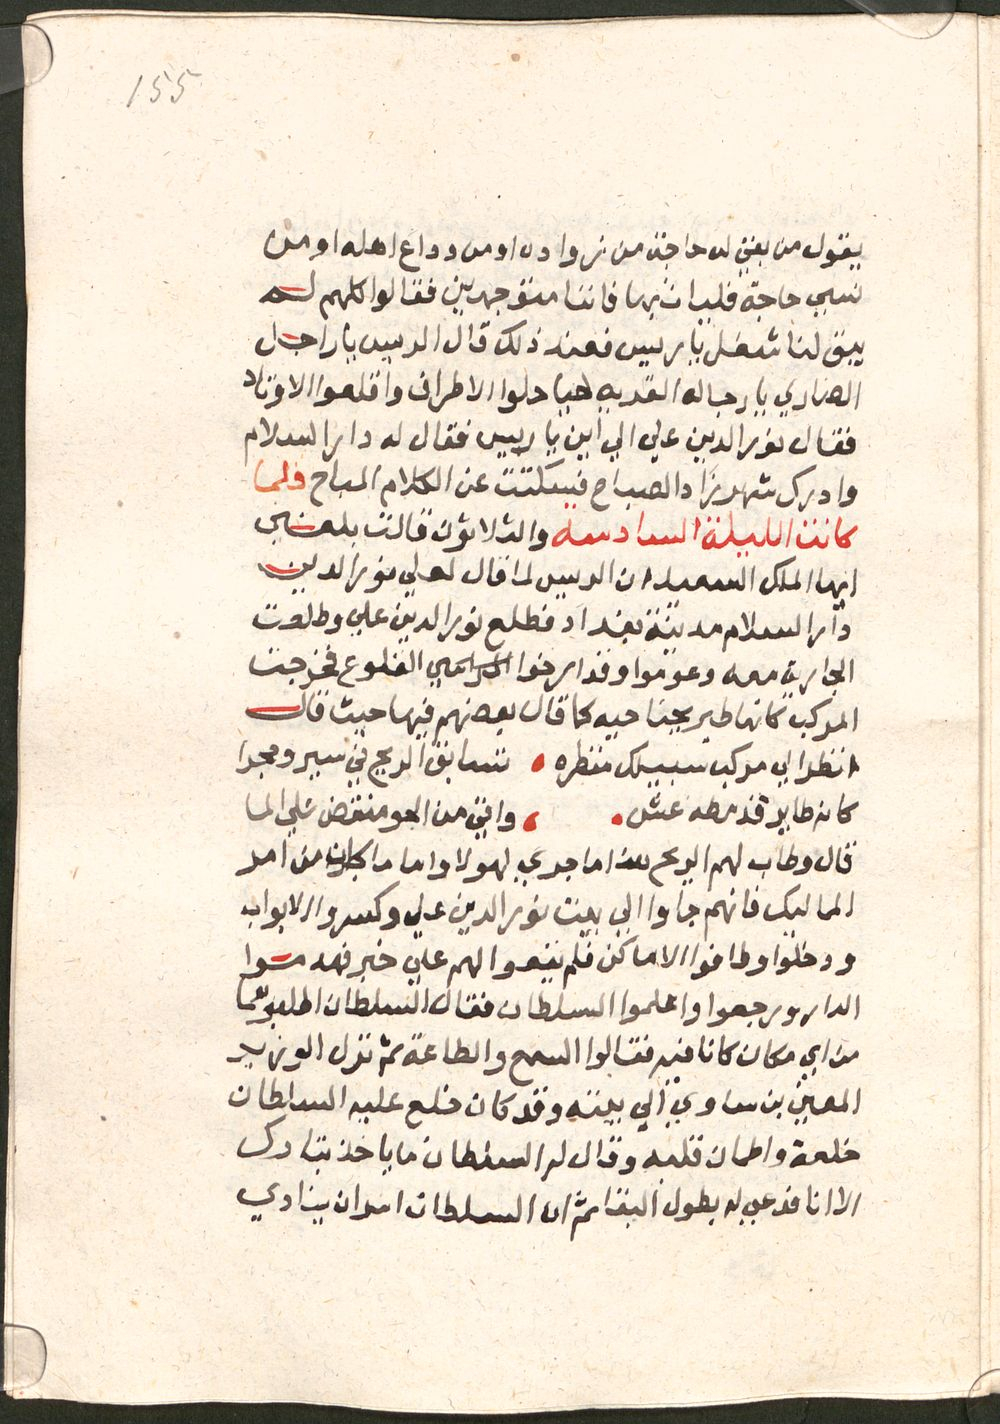 155
يقول من بقي له حاجة من زواده او من وداع اهله او من
نسي حاجة فليات بها فاننا متوجهين فقالوا كلهم لم
يبق لنا شغل يا ريس فعند ذلك قال الريس يا راجل
الصاري يا رجاله القديه هيا حلوا الاطراف واقلعوا الاوتاد
فقال نور الدين علي الي اين يا ريس فقال له دار السلام
وادرك شهرزاد الصباح فسكتت عن الكلام المباح فلما
كانت الليلة السادسة والثلاثون قالت بلغني
ايها الملك السعيد ان الريس لما قال لعلي نور الدين
دار السلام مدينة بغداد فطلع نور الدين علي وطلعت
الجارية معه وعوموا وقد ارخوا القلوع فخرجت
المركب كانها طير بجناحيه كما قال بعضهم فيها حيث قال
انظر الي مركب سبيك منظره تسابق الريح في سير ومجرا
كانه طاير قد مطه عش وافي من الجو منقض علي الما
قال وطاب لهم الريح هذا ما جري لهولا واما ما كان من امر
المماليك فانهم جاوا الي بيت نور الدين علي وكسروا الابواب
ودخلوا وطافوا الاماكن فلم يقعوا لهم علي خبر فهدموا
الدار ورجعوا واعلموا السلطان فقال السلطان اطلبوهما
من اي مكان كانا فيه فقالوا السمع والطاعة ثم نزل الوزير
المعين بن ساوي الي بيته وقد كان خلع عليه السلطان
خلعة واطمان قلبه وقال له السلطان ما ياخذ بتارك
الا انا فدعي له بطول البقا ثم ان السلطان امر ان ينادي